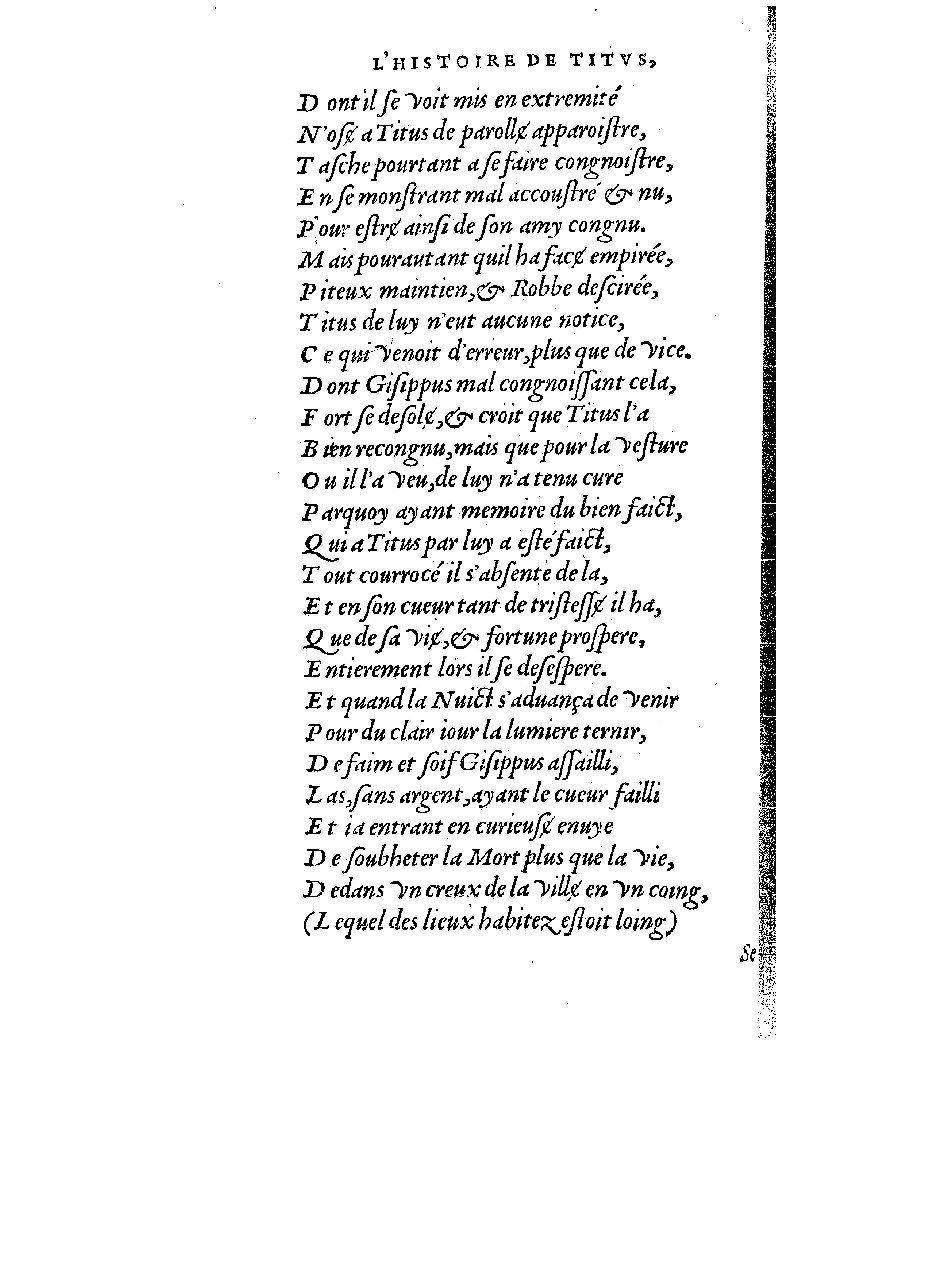 L'HISTOIRE DE TITVS,
D ont il ſe voit mis en extremité
N'oſɇ a Titus de parollɇ apparoiſtre,
T aſche pourtant a ſe faire congnoiſtre,
E n ſe monſtrant mal accouſtré & nu,
P our eſtrɇ ainſi de ſon amy congnu.
M ais pourautant quil ha facɇ empirée,
P iteux maintien, & Robbe deſcirée,
T itus de luy n'eut aucune notice,
C e qui venoit d'erreur, plus que de vice.
D ont Giſippus mal congnoiſſant cela,
F ort ſe deſolɇ, & croit que Titus l'a
B ien recongnu, mais que pour la veſture
O u il l'a veu, de luy n'a tenu cure
P arquoy ayant memoire du bien faict,
Q ui a Titus par luy a eſté faict,
T out courrocé il s'abſente de la,
E t en ſon cueur tant de triſteſſɇ il ha,
Q ue de ſa viɇ, & fortune proſpere,
E ntierement lors il ſe deſeſpere.
E t quand la Nuict s'aduança de venir
P our du clair iour la lumiere ternir,
D e faim et ſoif Giſippus aſſailli,
L as, ſans argent, ayant le cueur failli
E t ia entrant en curieuſɇ enuye
D e ſoubheter la Mort plus que la vie,
D edans vn creux de la villɇ en vn coing,
(L equel des lieux habitez eſtoit loing)
Se